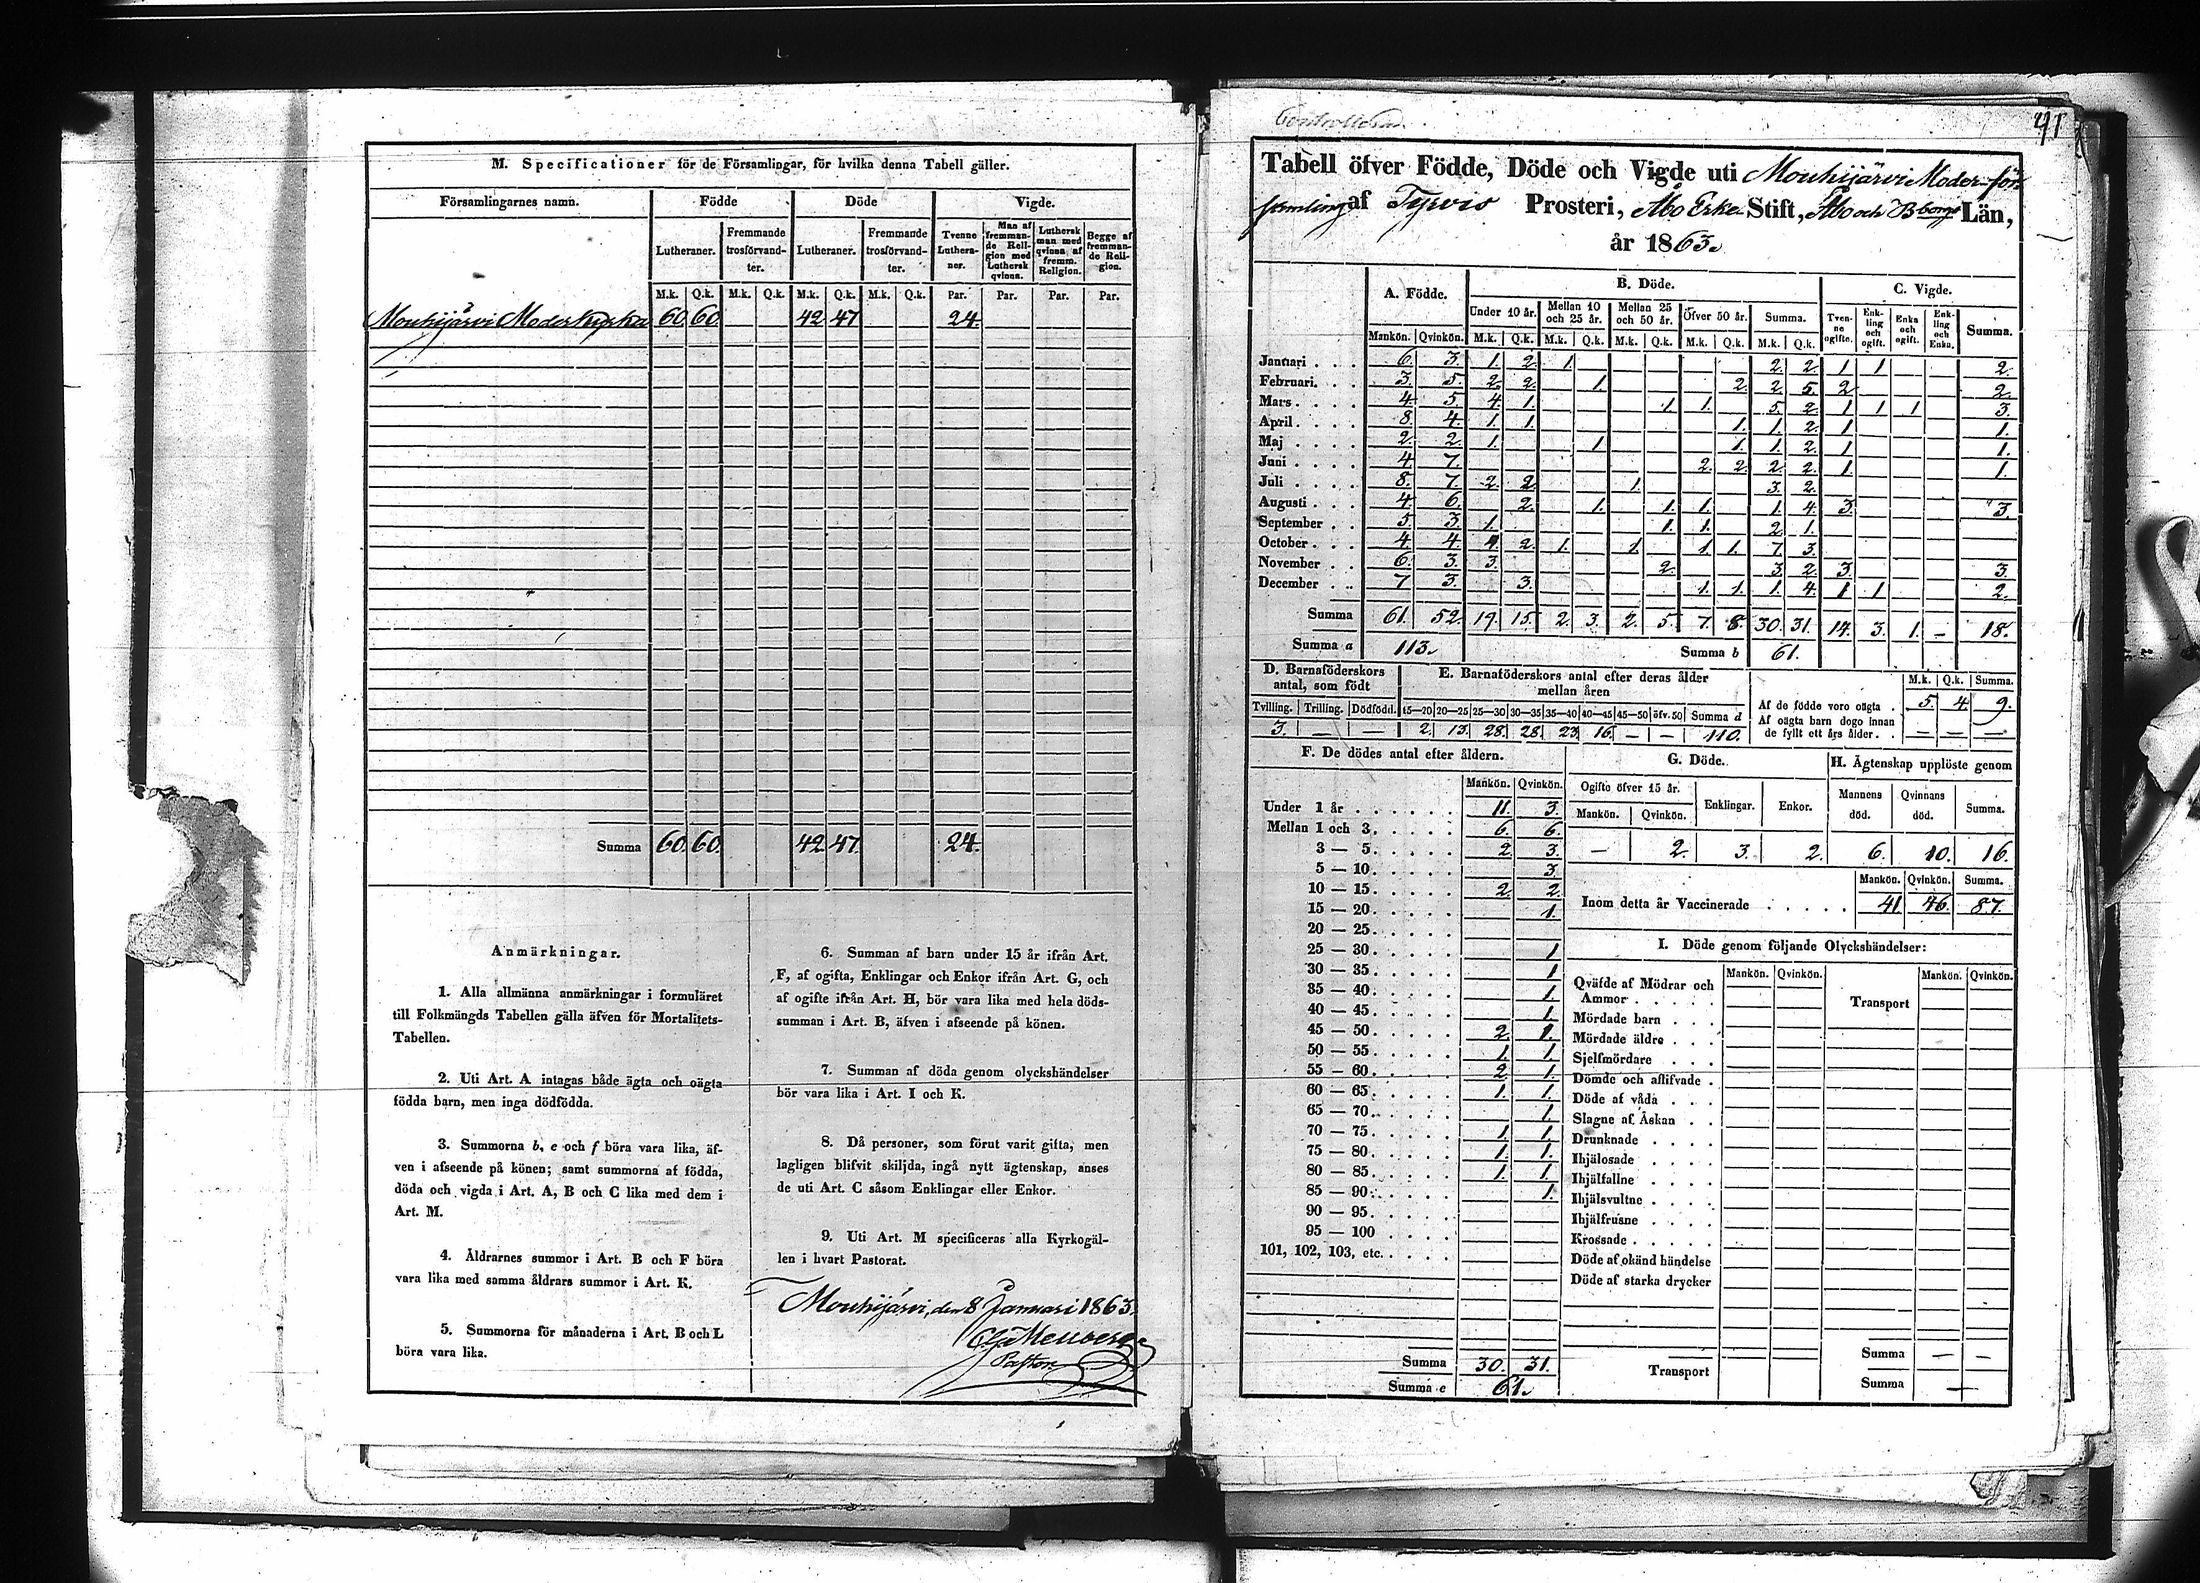 M. Specificationer för de Församlingar, för hvilka denna Tabell gäller.
Församlingarnes namn. Födde Döde Vigde.
Lutheraner. Fremmande trosförvandter. Lutheraner. Fremmande trosförvandter. Tvenne Lutheraner. Man af fremmande Religion med Luthersk qvinna. Luthersk man med qvinna af fremm. Religion. Begge af fremmande Religion.
M.k. Q.k. M.k. Q.k. M.k. Q.k. M.k. Q.k. Par. Par. Par. Par.
Mouhijärvi Moderkyrka 60. 60. 42. 47. 24.
Summa 60. 60. 42. 47. 24.
Anmärkningar.
1. Alla allmänna anmärkningar i formuläret
till Folkmängds Tabellen gälla äfven för Mortalitets-
Tabellen.
2. Uti Art. A intagas både ägta och oägta
födda barn, men inga dödfödda.
3. Summorna b, e och f böra vara lika, äf-
ven i afseende på könen; samt summorna af födda,
döda och vigda i Art. A, B och C lika med dem i
Art. M.
4. Åldrarnes summor i Art. B och F böra
vara lika med samma åldrars summor i Art. K.
5. Summorna för månaderna i Art. B och L
böra vara lika.
6. Summan af barn under 15 år ifrån Art.
F, af ogifta, Enklingar och Enkor ifrån Art. G, och
af ogifte ifrån Art. H, bör vara lika med hela döds-
summan i Art. B, äfven i afseende på könen.
7. Summan af döda genom olyckshändelser
bör vara lika i Art. I och K.
8. Då personer, som förut varit gifta, men
lagligen blifvit skiljda, ingå nytt ägtenskap, anses
de uti Art. C såsom Enklingar eller Enkor.
9. Uti Art. M specificeras alla Kyrkogäl-
len i hvart Pastorat.
Mouhijärvi, den 8 Januari 1863.
Pastor
91
Tabell öfver Födde, Döde och Vigde uti Mouhijärvi Moder-för-
samling af Tyrvis Prosteri, Åbo Erke Stift, Åbo och Bborgs Län,
år 1863.
A. Födde. B. Döde. C. Vigde.
Under 10 år. Mellan 10 och 25 år. Mellan 25 och 50 år. Öfver 50 år. Summa. Tvenne ogifte. Enkling och ogift. Enka och ogift. Enkling och Enka. Summa.
Mankön. Qvinkön. M.k. Q.k. M.k. Q.k. M.k. Q.k. M.k. Q.k. M.k. Q.k.
Januari . . . 6. 3. 1. 2. 1. 2. 2. 1 1 2.
Februari. . . 3. 5. 2. 2. 1. 2. 2. 5. 2 2.
Mars . . . . 4. 5. 4. 1. 1. 1. 5. 2. 1 1 1 3.
April. . . . 8. 4. 1. 1. 1. 1. 2. 1 1.
Maj . . . . 2. 2. 1. 1 1. 1. 2. 1 1.
Juni . . . . 4. 7. 2. 2. 2. 2. 1 1.
Juli . . . . 8. 7. 2. 2. 1. 3. 2.
Augusti . . . 4. 6. 2. 1. 1. 1. 1. 4. 3. 3.
September . . 5. 3. 1. 1. 1. 2. 1.
October . . . 4. 4. 4. 2. 1. 1. 1. 1. 7. 3.
November . . 6. 3. 3. 2. 3. 2. 3. 3.
December . . 7 3. 3. 1. 1. 1. 4. 1 1 2.
Summa 61. 52. 19. 15. 2. 3. 2. 5. 7. 8. 30. 31. 14. 3. 1. — 18.
Summa a 113. Summa b 61.
D. Barnaföderskors antal, som födt
Tvilling. Trilling. Dödfödd.
3. — —
E. Barnaföderskors antal efter deras ålder mellan åren
15—20 20—25 25—30 30—35 35—40 40—45 45—50 öfv. 50 Summa d
2. 13. 28. 28. 23. 16. — — 110.
M.k. Q.k. Summa.
Af de födde voro oägta . 5. 4. 9.
Af oägta barn dogo innan
de fyllt ett års ålder . . — — —
F. De dödes antal efter åldern.
Mankön. Qvinkön.
Under 1 år . . . . . 11. 3.
Mellan 1 och 3. . . . . 6. 6.
3 — 5. . . . . 2. 3.
5 — 10. . . . . 3.
10 — 15. . . . . 2. 2.
15 — 20. . . . . 1.
20 — 25. . . . .
25 — 30. . . . . 1
30 — 35. . . . . 1
35 — 40. . . . . 1.
40 — 45. . . . . 1.
45 — 50. . . . . 2. 1.
50 — 55. . . . . 1. 1.
55 — 60. . . . . 2. 1.
60 — 65. . . . . 1. 1.
65 — 70. . . . . 1.
70 — 75. . . . . 1. 1.
75 — 80. . . . . 1. 1.
80 — 85. . . . . 1. 1.
85 — 90. . . . . 1.
90 — 95. . . . .
95 — 100 . . . . .
101, 102, 103, etc. . . . .
Summa 30. 31.
Summa e 61.
G. Döde.
Ogifte öfver 15 år. Enklingar. Enkor.
Mankön. Qvinkön.
— 2. 3. 2.
H. Ägtenskap upplöste genom
Mannens död. Qvinnans död. Summa.
6. 10. 16.
Mankön. Qvinkön. Summa.
Inom detta år Vaccinerade . . . . . 41. 46. 87.
I. Döde genom följande Olyckshändelser:
Mankön. Qvinkön. Mankön. Qvinkön.
Qväfde af Mödrar och
Ammor . . . . .
Mördade barn . . .
Mördade äldre . . .
Sjelfmördare . . .
Dömde och aflifvade .
Döde af våda . . .
Slagne af Åskan . .
Drunknade . . . .
Ihjälosade . . . .
Ihjälfallne . . . .
Ihjälsvultne . . . .
Ihjälfrusne . . . .
Krossade . . . . .
Döde af okänd händelse
Döde af starka drycker
Transport
Transport
Summa — —
Summa —